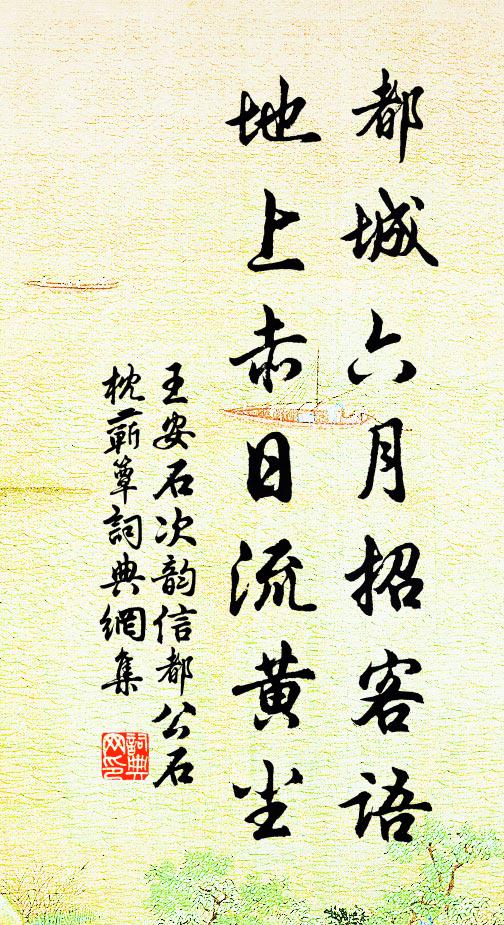 都城六月招客語
地上赤日流黃尘
王安石次韵信都公石
枕蕲簟詞典網集
詞典网印